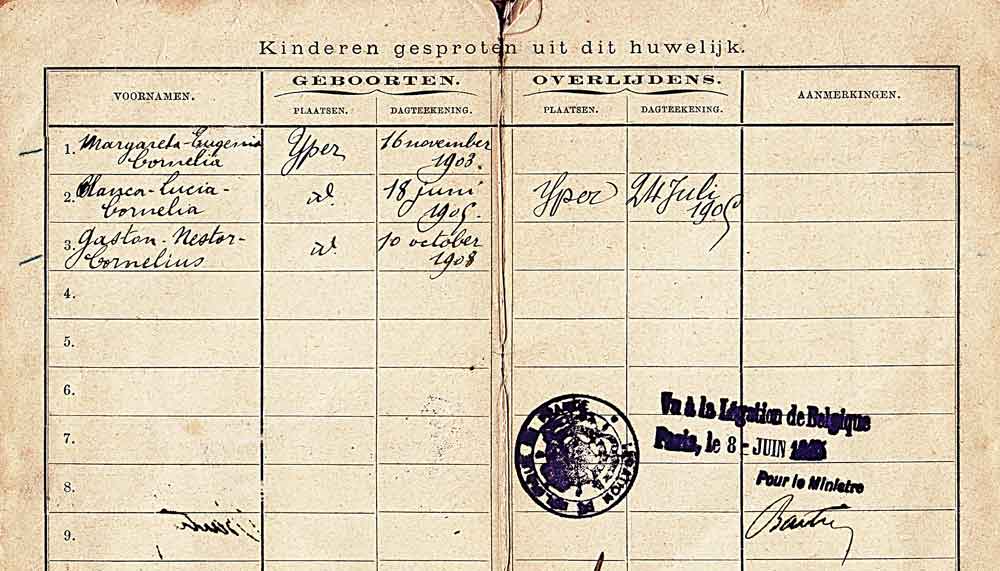 Kinderen gesproten uit dit huwelijk.
VOORNAMEN.
GEBOORTEN.
OVERLIJDENS.
AANMERKINGEN.
PLAATSEN.
DAGTEEKENING.
PLAATSEN.
DAGTEEKENING.
1. Margareta-Eugenia
Cornelia
Yper
16 november
1903.
2. Blanca-Lucia-
Cornelia
id.
18 juni
1905.
Yper
24 Juli
1905
3. Gaston-Nestor-
Cornelius
id.
10 october
1908
4.
5.
6.
7.
8.
9.
Vu à la Légation de Belgique
Paris, le 8 - JUIN
Pour le Ministre